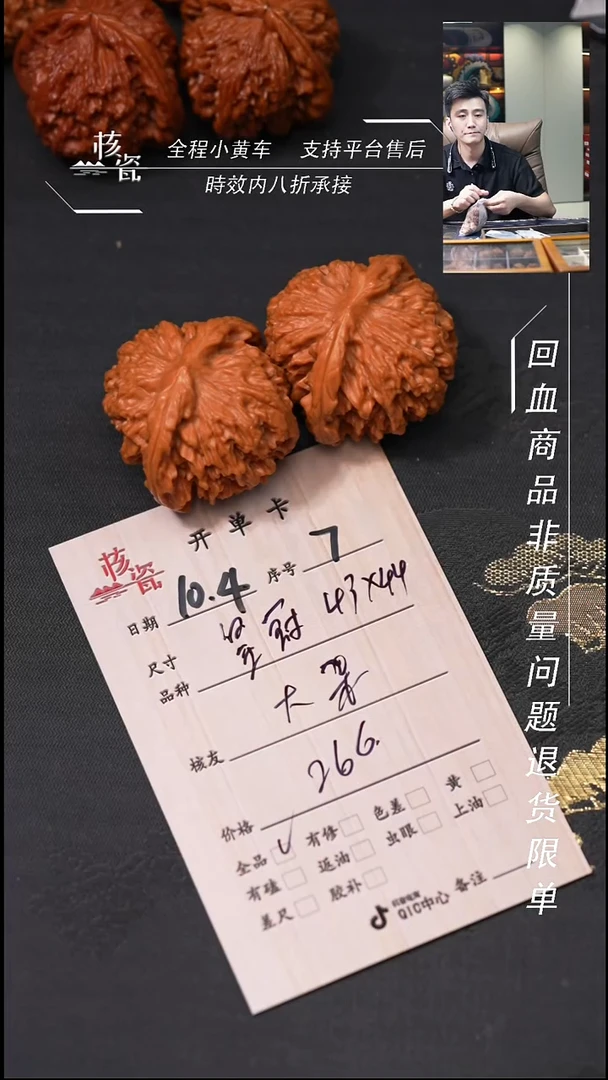 核瓷
全程小黄车 支持平台售后
時效内八折承接
回血商品非质量问题退货限单
开单卡
核瓷
日期 10.4 序号 7
尺寸
品种 43×44
核友
价格 266.
全品 ✓ 有修 色差 黄
有磕 返油 虫眼 上油
差尺 胶补
抖音电商
QIC中心 备注